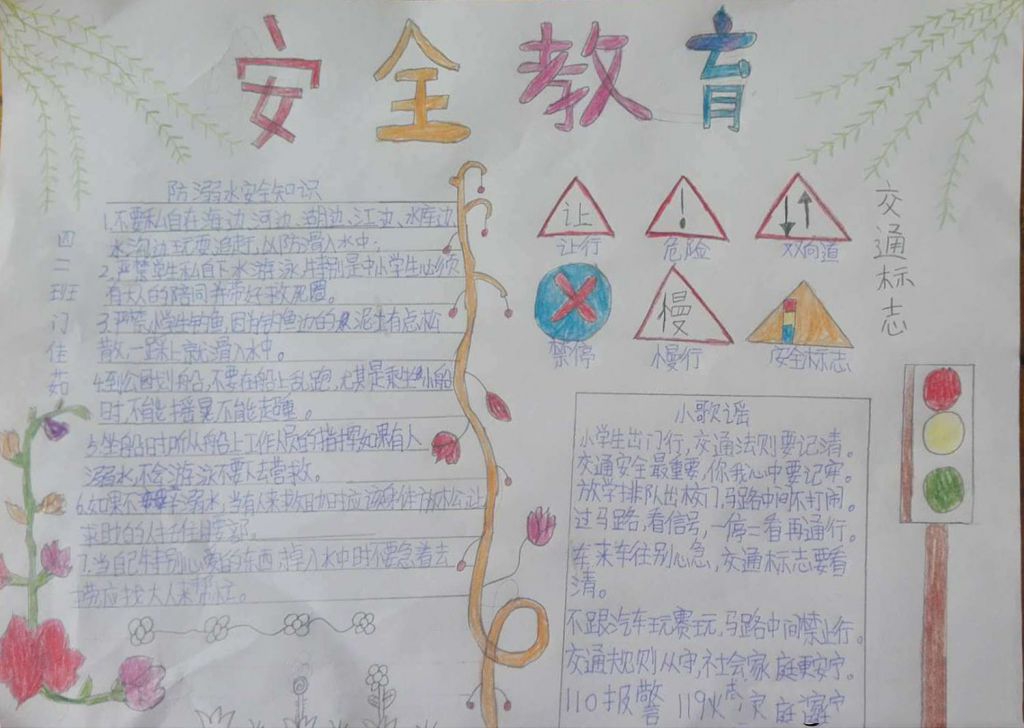 安全教育
防溺水安全知识
1.不要私自在海边、河边、湖边、江边、水库边、
水沟边玩耍追赶,以防滑入水中.
2.严禁学生私自下水游泳,特别是中小学生必须
有大人的陪同并带好救生圈。
3.严禁小学生钓鱼,因为钓鱼边的泥土有点松
散,一踩上就滑入水中。
4.到公园划船,不要在船上乱跑,尤其是乘坐小船
时,不能摇晃不能超
5.坐船时听从船上工作人员的指挥如果有人
溺水,不会游泳不要下去营救。
6.如果不幸溺水,当有人来救助时应该身体放松让
求助的人托住腰部。
7.当自己特别心爱的东西,掉入水中时不要急着去
捞应找大人来帮忙。
四二班 门佳茹
让
让行
危险
双向道
禁停
慢
慢行
安全标志
交通标志
小歌谣
小学生出门行,交通法则要记清。
交通安全最重要,你我心中要记牢。
放学排队出校门,马路中间不打闹。
过马路,看信号,一停二看再通行。
车来车往别心急,交通标志要看
清。
不跟汽车玩赛玩,马路中间禁止行。
交通规则从守,社会家庭更安宁。
110报警 119火